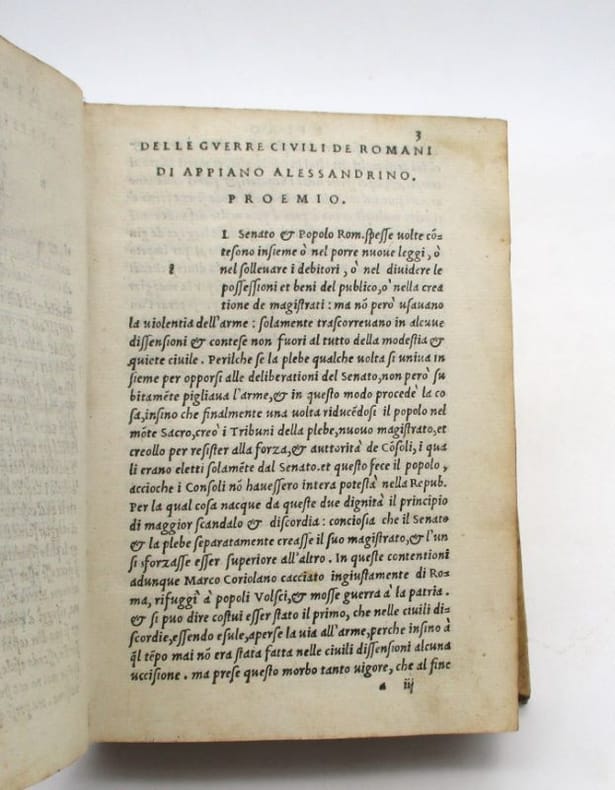 3
DELLE GVERRE CIVILI DE ROMANI
DI APPIANO ALESSANDRINO.
PROEMIO.
I L Senato & Popolo Rom. spesse uolte cō=
tesono insieme ò nel porre nuoue leggi, ò
nel solleuare i debitori, ò nel diuidere le
possessioni et beni del publico, ò nella crea
tione de magistrati: ma nō però usauano
la uiolentia dell'arme: solamente trascorreuano in alcune
dissensioni & contese non fuori al tutto della modestia &
quiete ciuile. Perilche se la plebe qualche uolta si uniua in
sieme per opporsi alle deliberationi del Senato, non però su
bitamēte pigliaua l'arme, & in questo modo procedè la co
sa, insino che finalmente una uolta riducēdosi il popolo nel
mōte Sacro, creò i Tribuni della plebe, nuouo magistrato, et
creollo per resister alla forza, & auttorità de Cōsoli, i qua
li erano eletti solamēte dal Senato. et questo fece il popolo,
accioche i Consoli nō hauessero intera potestà nella Repub.
Per la qual cosa nacque da queste due dignità il principio
di maggior scandalo & discordia: conciosia che il Senato
& la plebe separatamente creasse il suo magistrato, & l'un
si sforzasse esser superiore all'altro. In queste contentioni
adunque Marco Coriolano cacciato ingiustamente di Ro=
ma, rifuggì à popoli Volsci, & mosse guerra à la patria.
& si puo dire costui esser stato il primo, che nelle ciuili di=
scordie, essendo esule, aperse la uia all'arme, perche insino à
q̄l tēpo mai nō era stata fatta nelle ciuili dissensioni alcuna
uccisione. ma prese questo morbo tanto uigore, che al fine
a iij